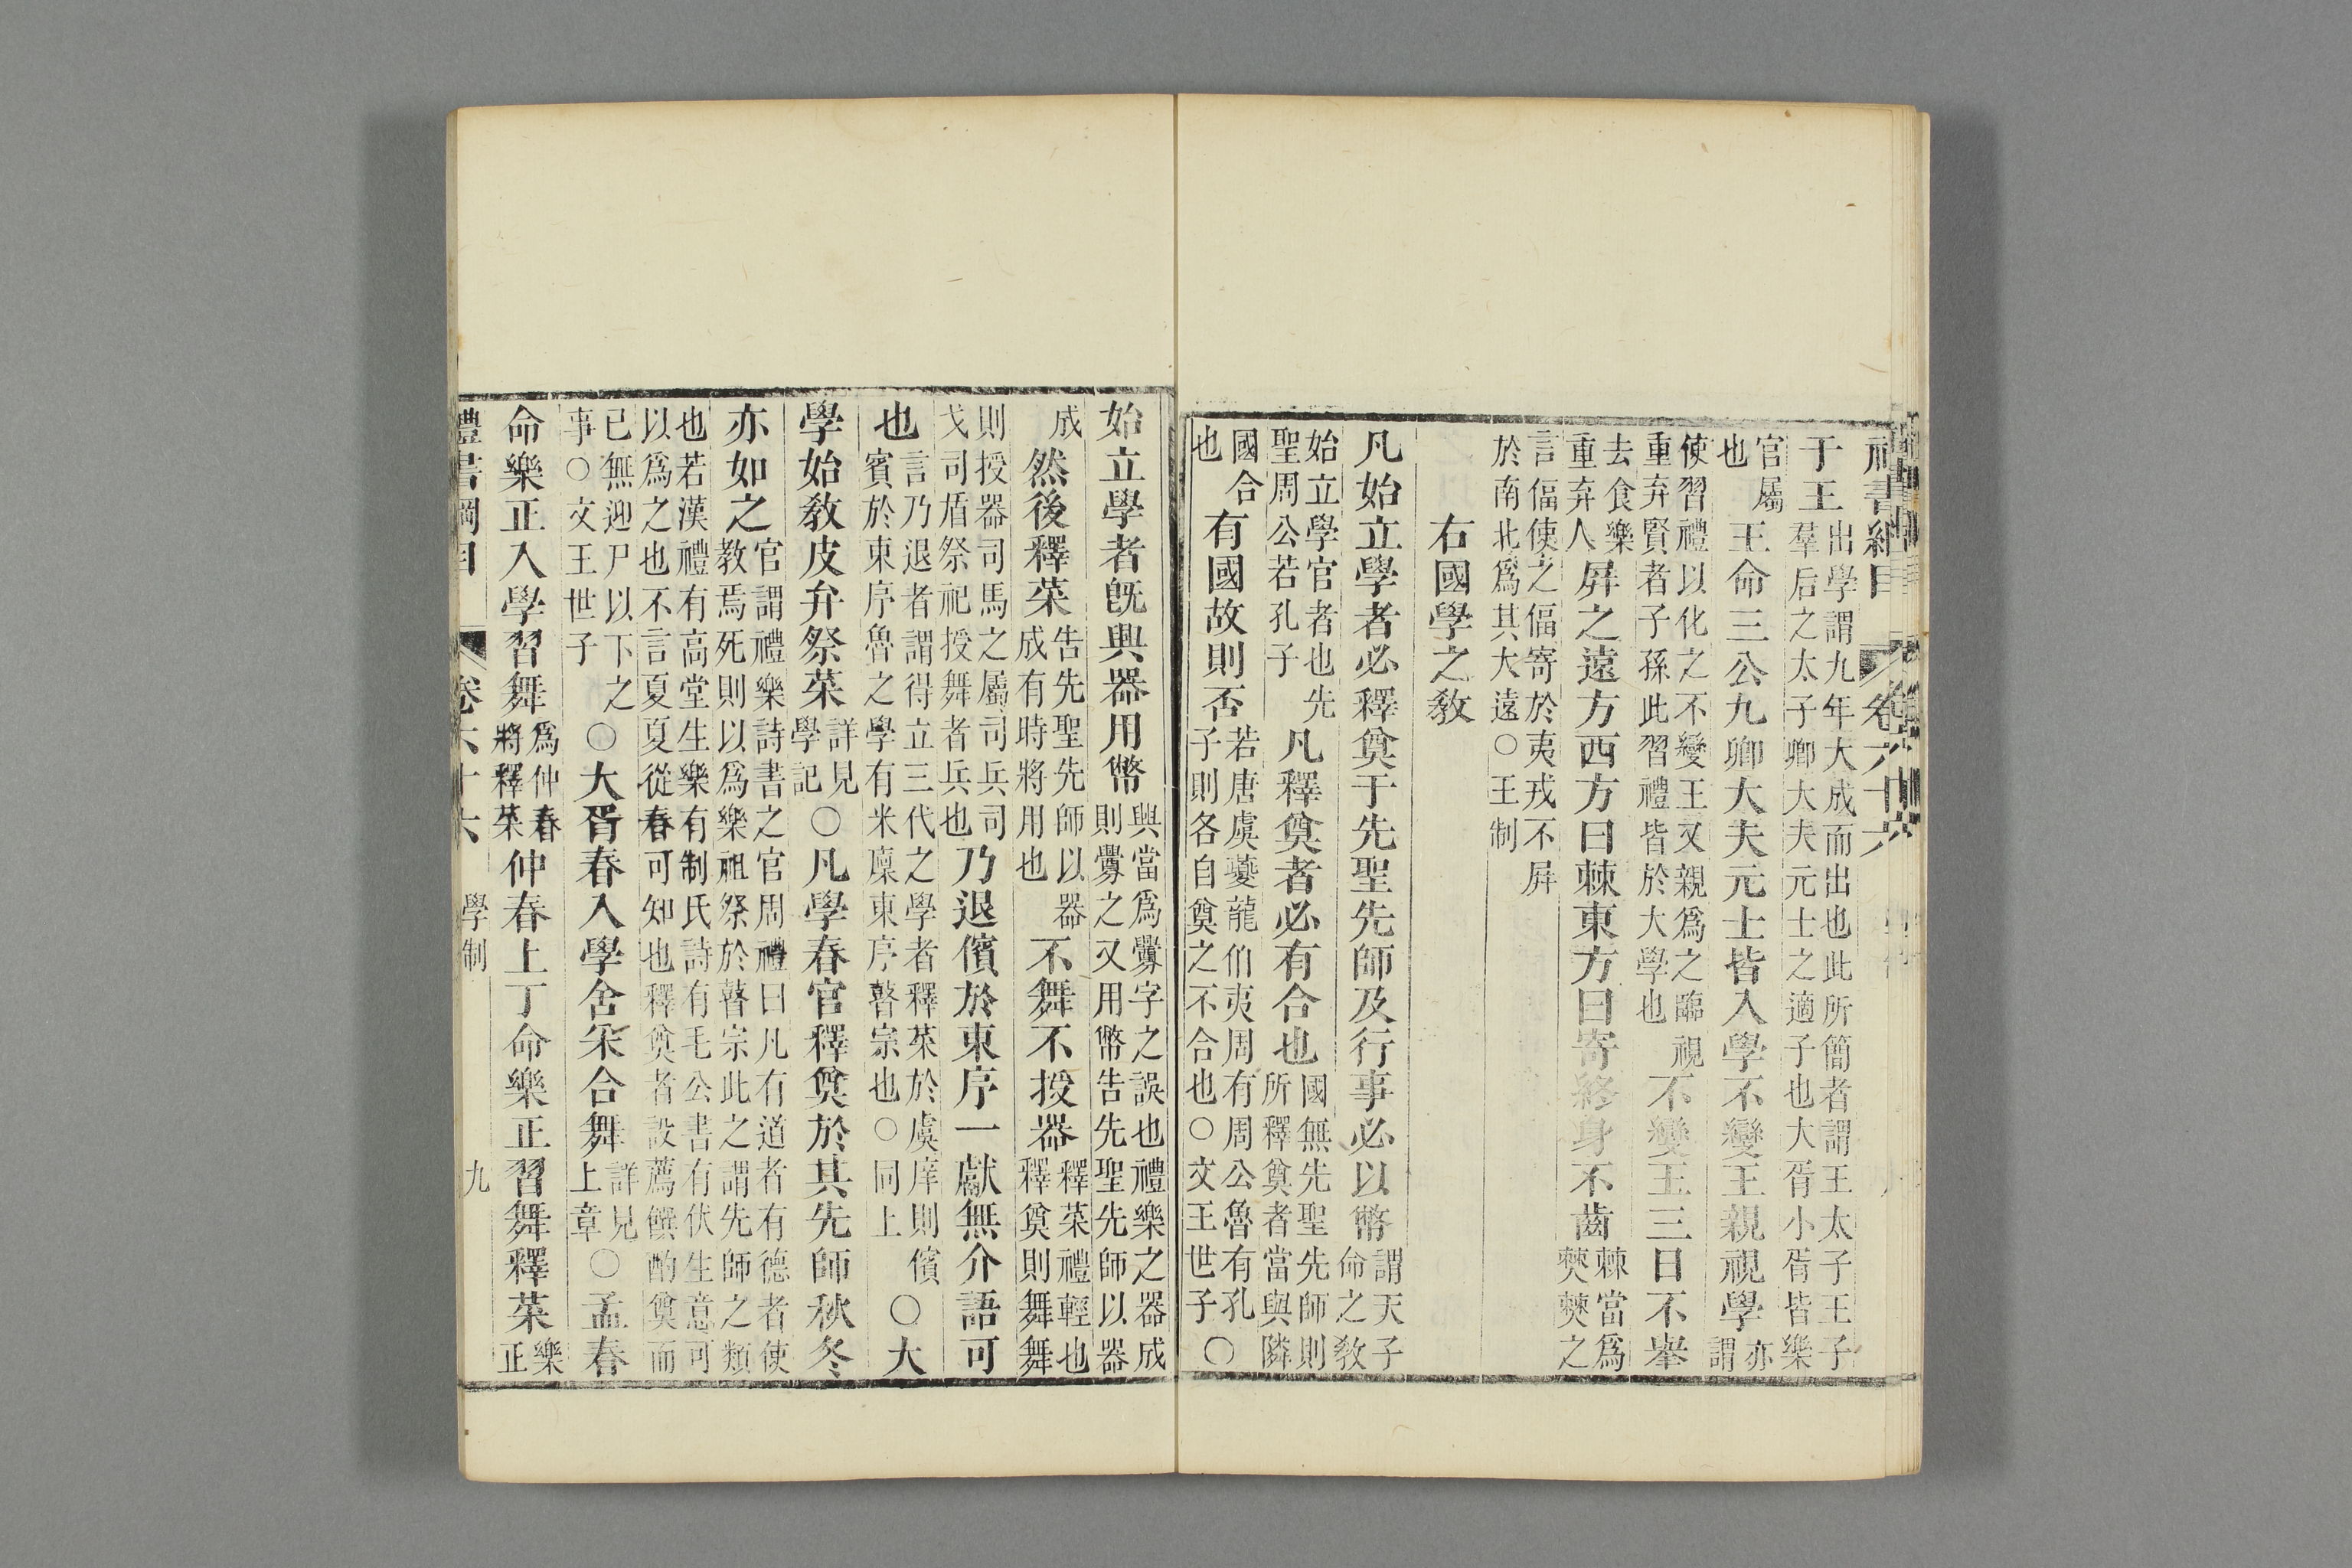 禮書綱目 卷六十六
于王出學謂九年大成而出也此所簡者謂王太子王子羣后之太子卿大夫元士之適子也大胥小胥皆樂
官屬也王命三公九卿大夫元士皆入學不變王親視學亦謂
使習禮以化之不變王又親爲之臨視重弃賢者子孫此習禮皆於大學也不變王三日不舉
去食樂重弃人屏之遠方西方曰棘東方曰寄終身不齒棘當爲僰僰之
言偪使之偪寄於夷戎不屏於南北爲其大遠○王制
右國學之敎
凡始立學者必釋奠于先聖先師及行事必以幣謂天子命之敎
始立學官者也先聖周公若孔子凡釋奠者必有合也國無先聖先師則所釋奠者當與隣
國合也有國故則否若唐虞夔龍伯夷周有周公魯有孔子則各自奠之不合也○文王世子○
始立學者旣興器用幣興當爲釁字之誤也禮樂之器成則釁之又用幣告先聖先師以器
成然後釋菜告先聖先師以器成有時將用也不舞不授器釋菜禮輕也釋奠則舞舞
則授器司馬之屬司兵司戈司盾祭祀授舞者兵也乃退儐於東序一獻無介語可
也言乃退者謂得立三代之學者釋菜於虞庠則儐賓於東序魯之學有米廩東序瞽宗也○同上○大
學始敎皮弁祭菜詳見學記○凡學春官釋奠於其先師秋冬
亦如之官謂禮樂詩書之官周禮曰凡有道者有德者使教焉死則以爲樂祖祭於瞽宗此之謂先師之類
也若漢禮有高堂生樂有制氏詩有毛公書有伏生意可以爲之也不言夏夏從春可知也釋奠者設薦饌酌奠而
已無迎尸以下之事○文王世子○大胥春入學舍采合舞詳見上章○孟春
命樂正入學習舞爲仲春將釋菜仲春上丁命樂正習舞釋菜樂正
禮書綱目 卷六十六 學制 九